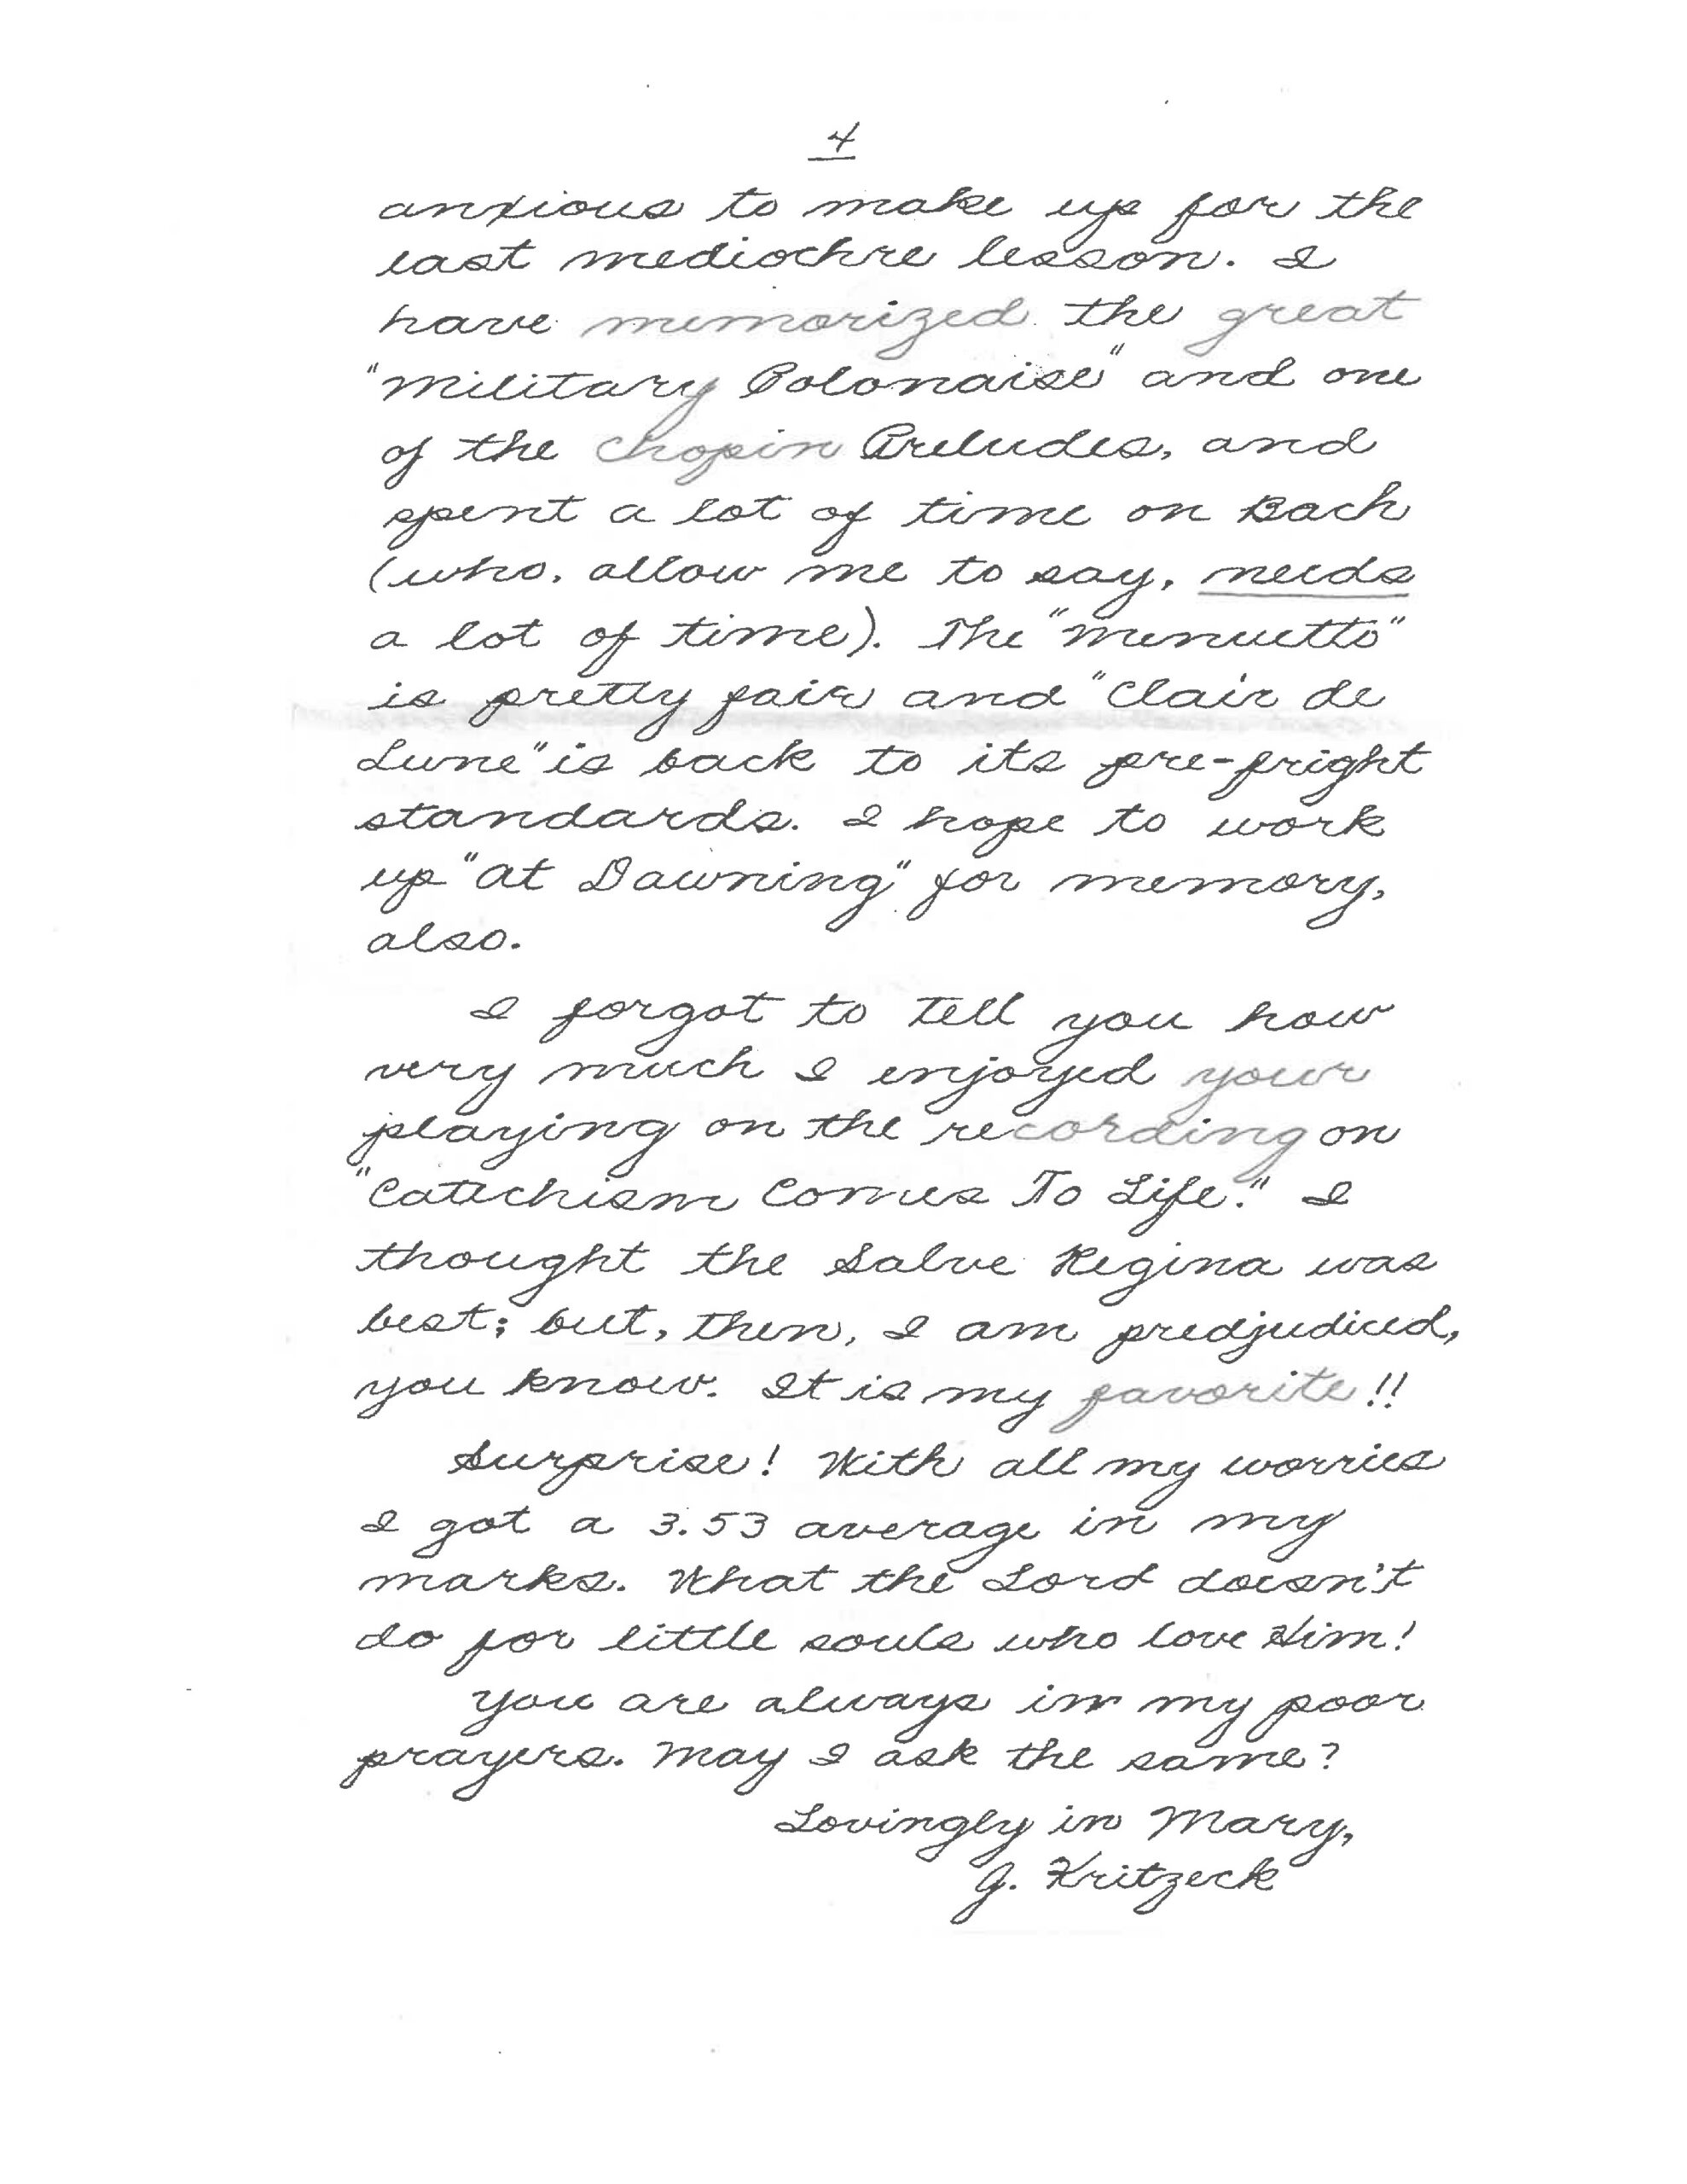 4
anxious to make up for the
last mediochre lesson. I
have memorized the great
"Military Polonaise" and one
of the Chopin Preludes, and
spent a lot of time on Bach
(who, allow me to say, needs
a lot of time). The "Menuetto"
is pretty fair and "Clair de
Lune" is back to its pre-fright
standards. I hope to work
up "At Dawning" for memory,
also.
I forgot to tell you how
very much I enjoyed your
playing on the recording on
"Catechism Comes To Life." I
thought the Salve Regina was
best; but, then, I am predjudiced,
you know. It is my favorite!!
Surprise! With all my worries
I got a 3.53 average in my
marks. What the Lord doesn't
do for little souls who love Him!
You are always in my poor
prayers. May I ask the same?
Lovingly in Mary,
J. Kritzeck